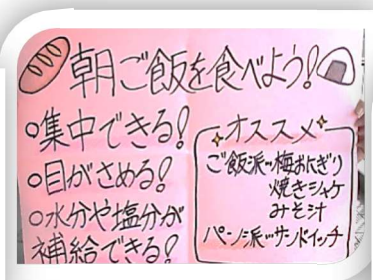 朝ご飯を食べよう!
○集中できる!
○目がさめる!
○水分や塩分が
補給できる!
オススメ
ご飯派…梅おにぎり
焼きシャケ
みそ汁
パン派…サンドイッチ